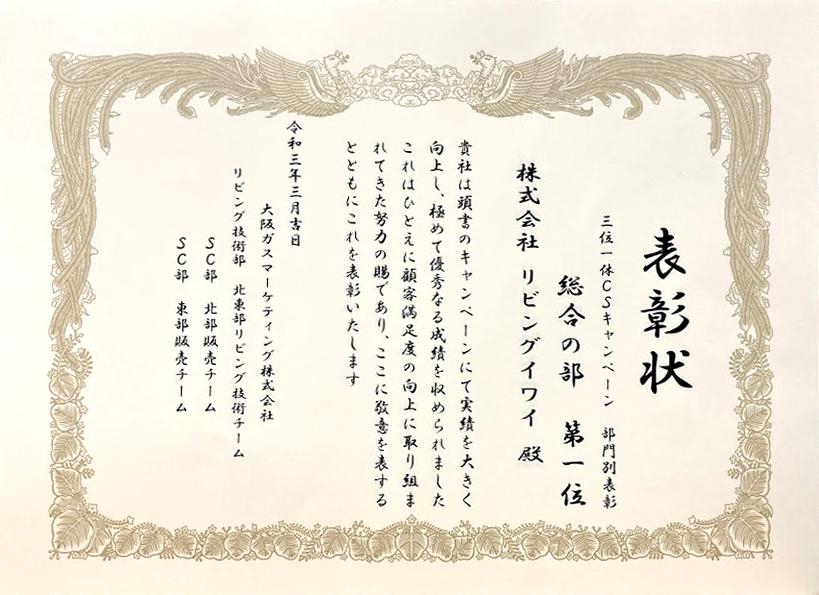 表彰状
三位一体CSキャンペーン 部門別表彰
総合の部 第一位
株式会社 リビングイワイ 殿
貴社は頭書のキャンペーンにて実績を大きく
向上し、極めて優秀なる成績を収められました
これはひとえに顧客満足度の向上に取り組ま
れてきた努力の賜であり、ここに敬意を表する
とともにこれを表彰いたします
令和三年三月吉日
大阪ガスマーケティング株式会社
リビング技術部 北東部リビング技術チーム
SC部 北部販売チーム
SC部 東部販売チーム